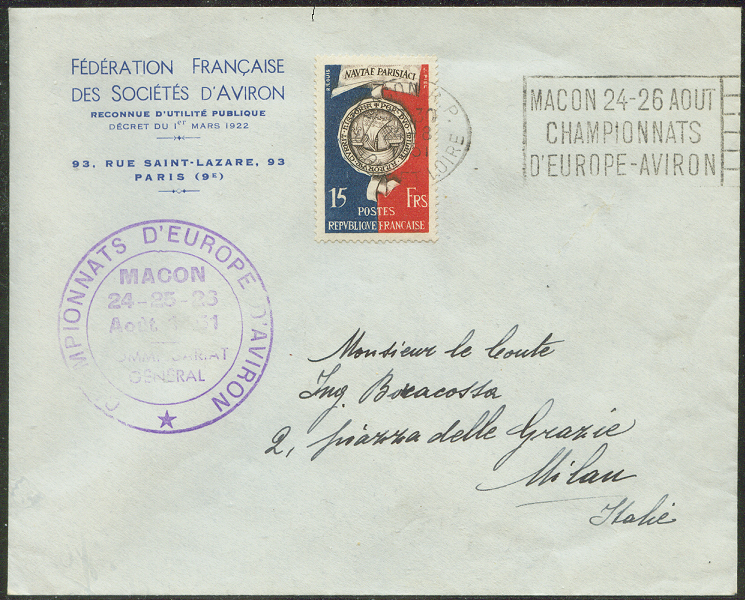 FÉDÉRATION FRANÇAISE
DES SOCIÉTÉS D'AVIRON
RECONNUE D'UTILITÉ PUBLIQUE
DÉCRET DU 1er MARS 1922
93, RUE SAINT-LAZARE, 93
PARIS (9E)
NAVTAE PARISIACI
15 FRS
POSTES
REPVBLIQUE FRANÇAISE
R.P.
LOIRE
MACON 24-26 AOUT
CHAMPIONNATS
D'EUROPE-AVIRON
CHAMPIONNATS D'EUROPE D'AVIRON
MACON
24-25-26
Août 1951
COMMISSARIAT
GÉNÉRAL
Monsieur le Comte
Ing. Bonacossa
2, piazza delle Grazie
Milan
Italie